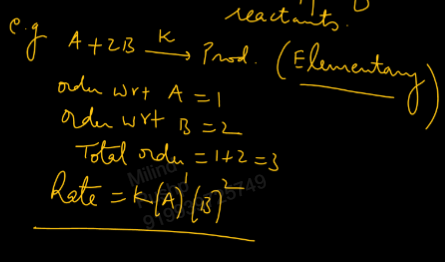 reactants.
e.g A + 2B —K→ Prod. (Elementary)
order wrt A = 1
order wrt B = 2
Total order = 1+2 = 3
Rate = K(A)¹(B)²